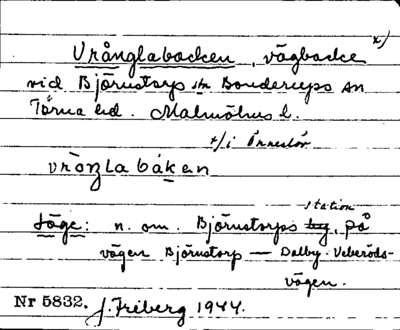 Vrånglabacken, vägbacke x)
vid Björnstorps stn Bonderups sn
Torna hd. Malmöhus l.
x/i Örneslöv
vròŋla bákən
Läge: n. om. Björnstorps station, på
vägen Björnstorp — Dalby-Veberöds-
vägen.
Nr 5832. J. Friberg 1944.